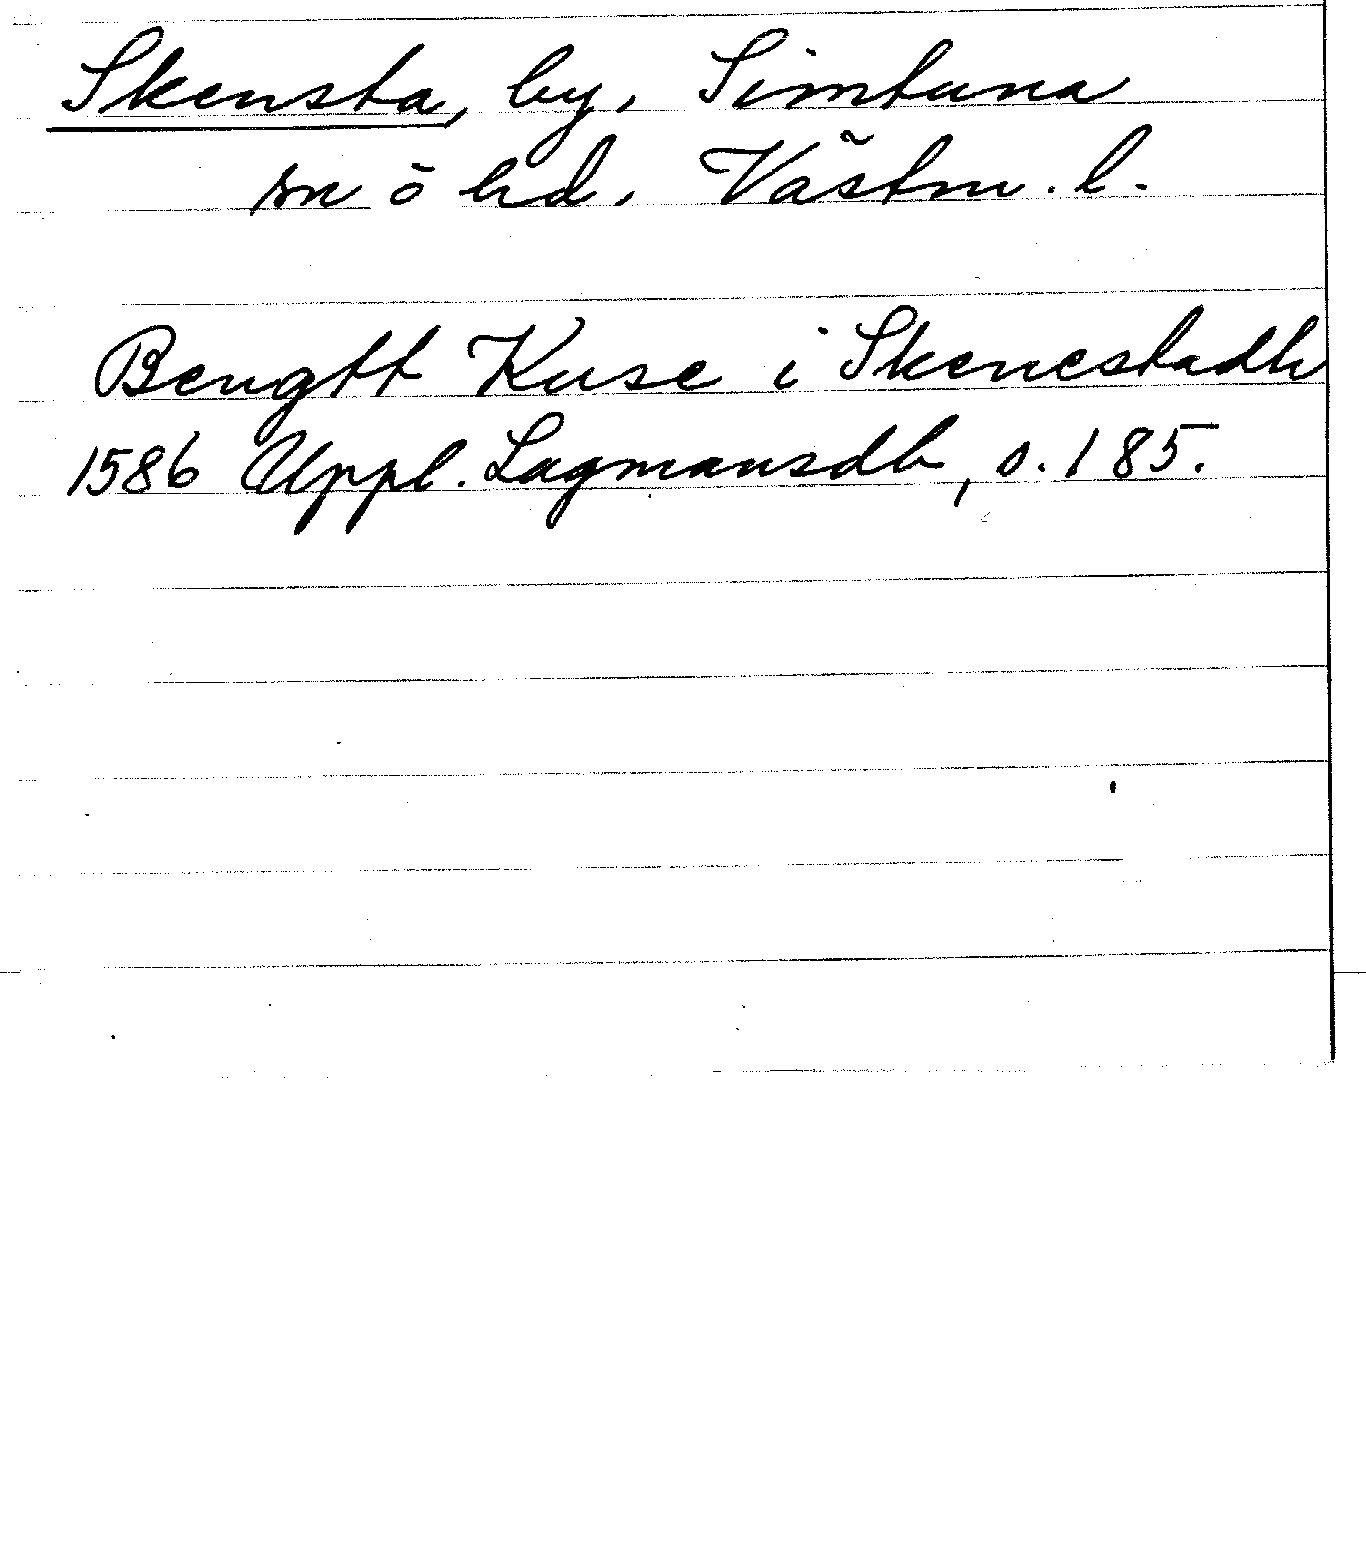 Skensta, by, Simtuna
sn ō hd, Västm. l.
Bengtt Kuse i Skenestadh
1586 Uppl. Lagmansdb, s. 185.